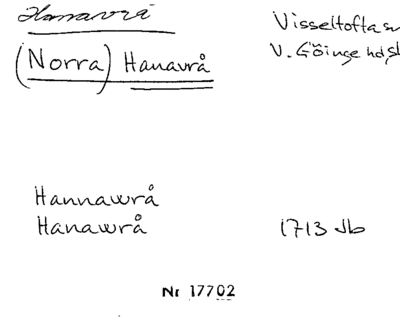 Hanavrå Visseltofta sn
(Norra) Hanavrå V. Göinge hd,
Hannawrå
Hanawrå 1713 Jb
Nr 17702